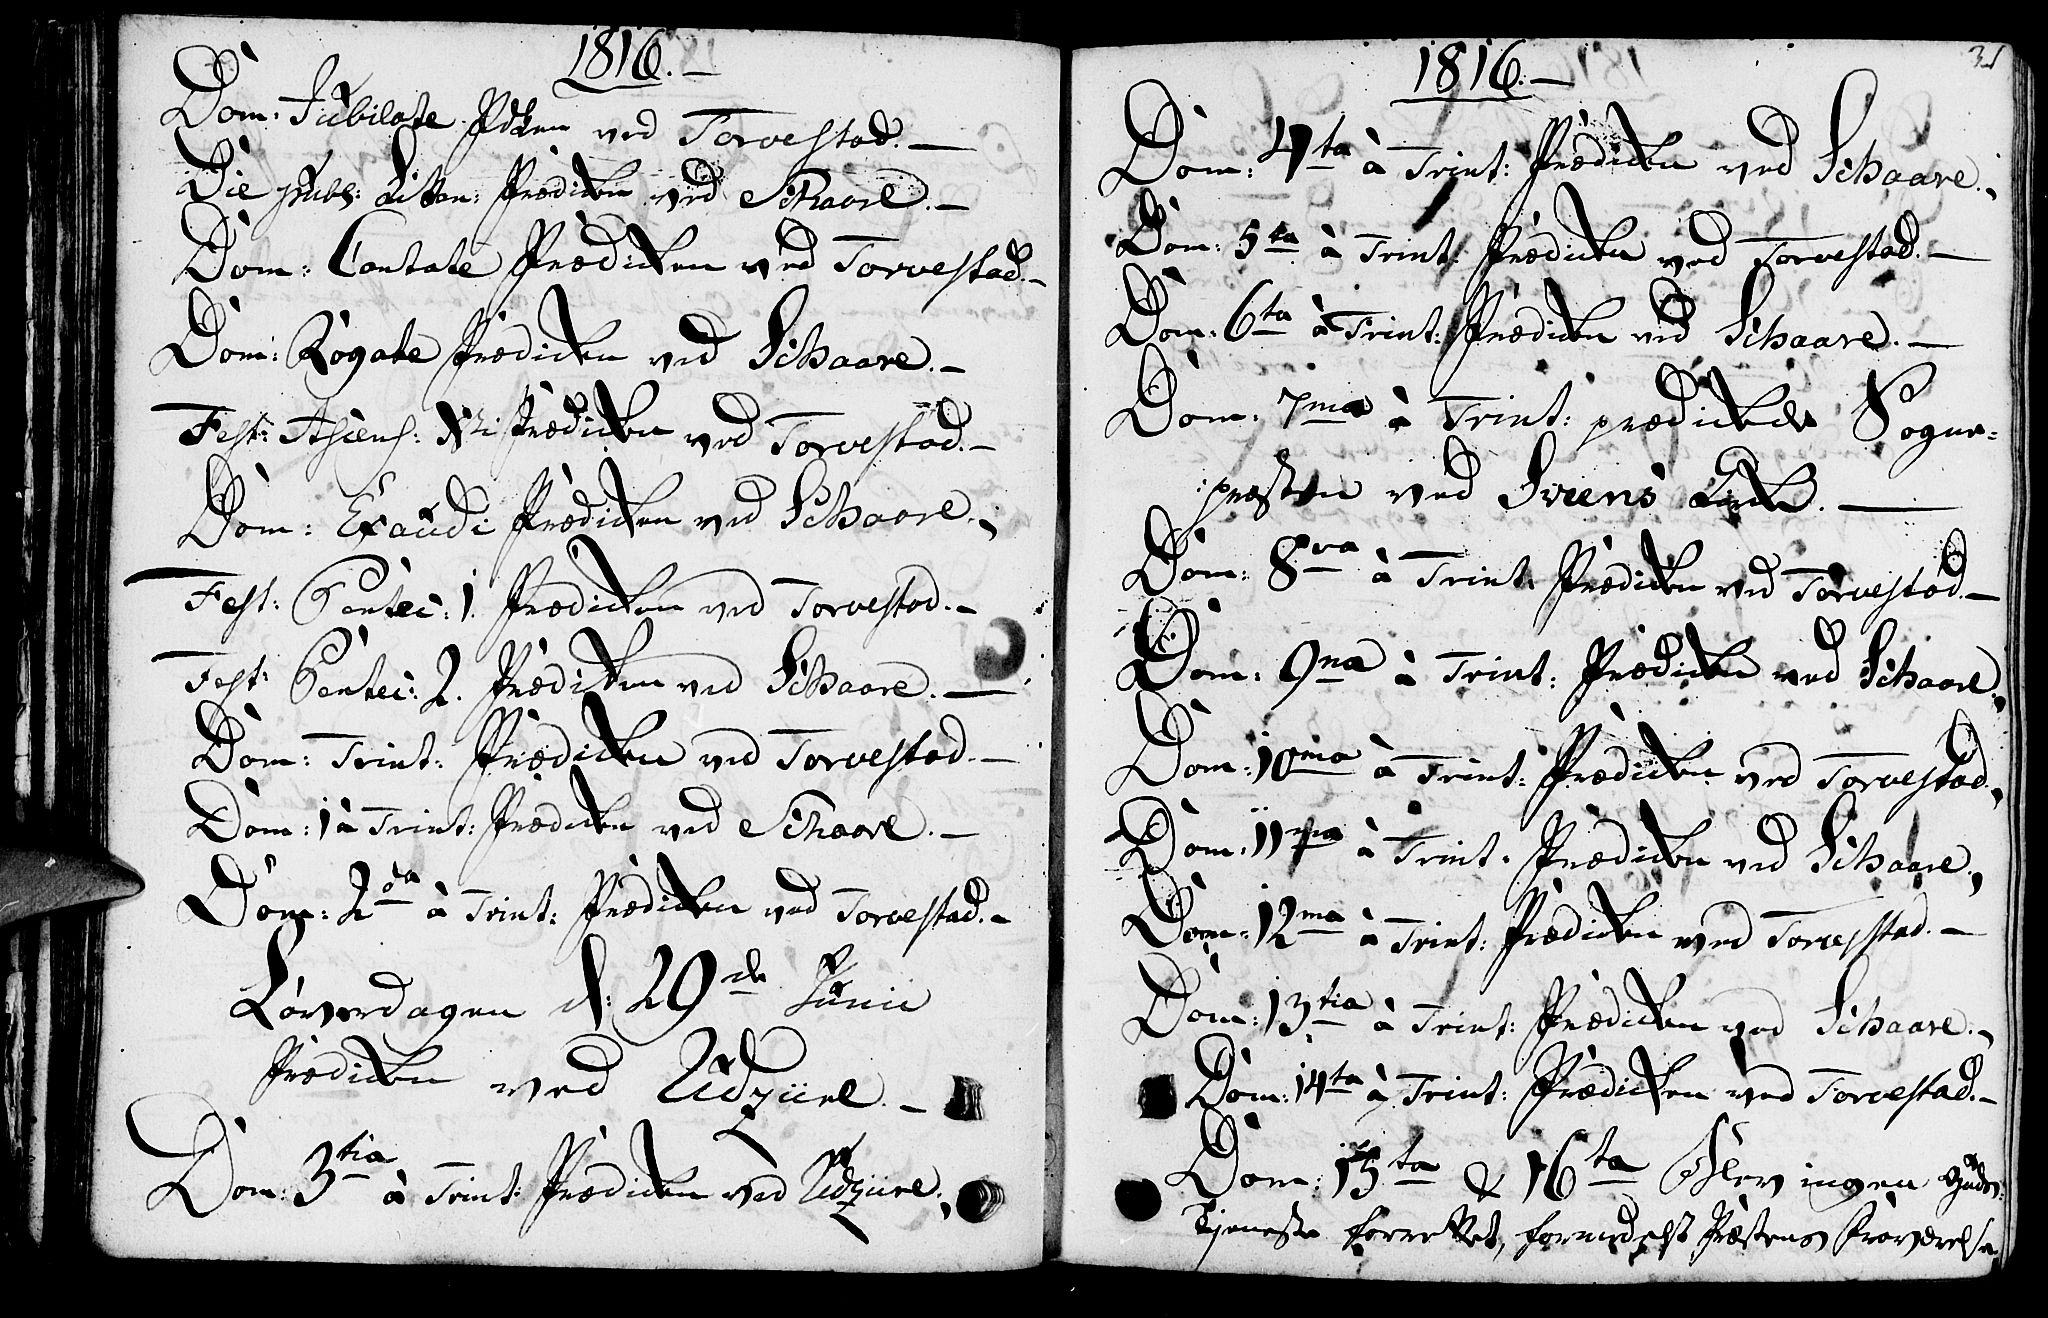 1816.
Dom: Jubilate Prdken ved Torvestad.
Die publ: Litan: Prædicken ved Schaare.
Dom: Cantate Prædicken ved Torvestad.
Dom: Rogate Prædicken ved Schaare.
Fest: Ascens: Xti Prædicken ved Torvestad.
Dom: Exaudi Prædicken ved Schaare.
Fest: Pentec: 1. Prædicken ved Torvestad.
Fest: Pentec: 2. Prædicken ved Schaare.
Dom: Trint: Prædicken ved Torvestad.
Dom: 1 à Trint: Prædicken ved Schaare.
Dom: 2da à Trint: Prædicken ved Torvestad.
Löverdagen d: 29de Junii
Prædicken ved Udzüre.
Dom: 3tia à Trint: Prædicken ved Udzüre.
1816.
31
Dom: 4ta à Trint: Prædicken ved Schaare.
Dom: 5ta à Trint: Prædicken ved Torvestad.
Dom: 6ta à Trint: Prædicken ved Schaare.
Dom: 7ma à Trint: prædickede Sogne=
præsten ved Svens Kirke.
Dom: 8va à Trint: Prædicken ved Torvestad.
Dom: 9na à Trint: Prædicken ved Schaare.
Dom: 10ma à Trint: Prædicken ved Torvestad.
Dom: 11ma à Trint: Prædicken ved Schaare.
Dom: 12ma à Trint: Prædicken ved Torvestad.
Dom: 13tia à Trint: Prædicken ved Schaare.
Dom: 14ta à Trint: Prædicken ved Torvestad.
Dom: 15ta & 16ta Blev ingen Guds
Tjeneste forrettet, formedelst Præstens Fraværelse